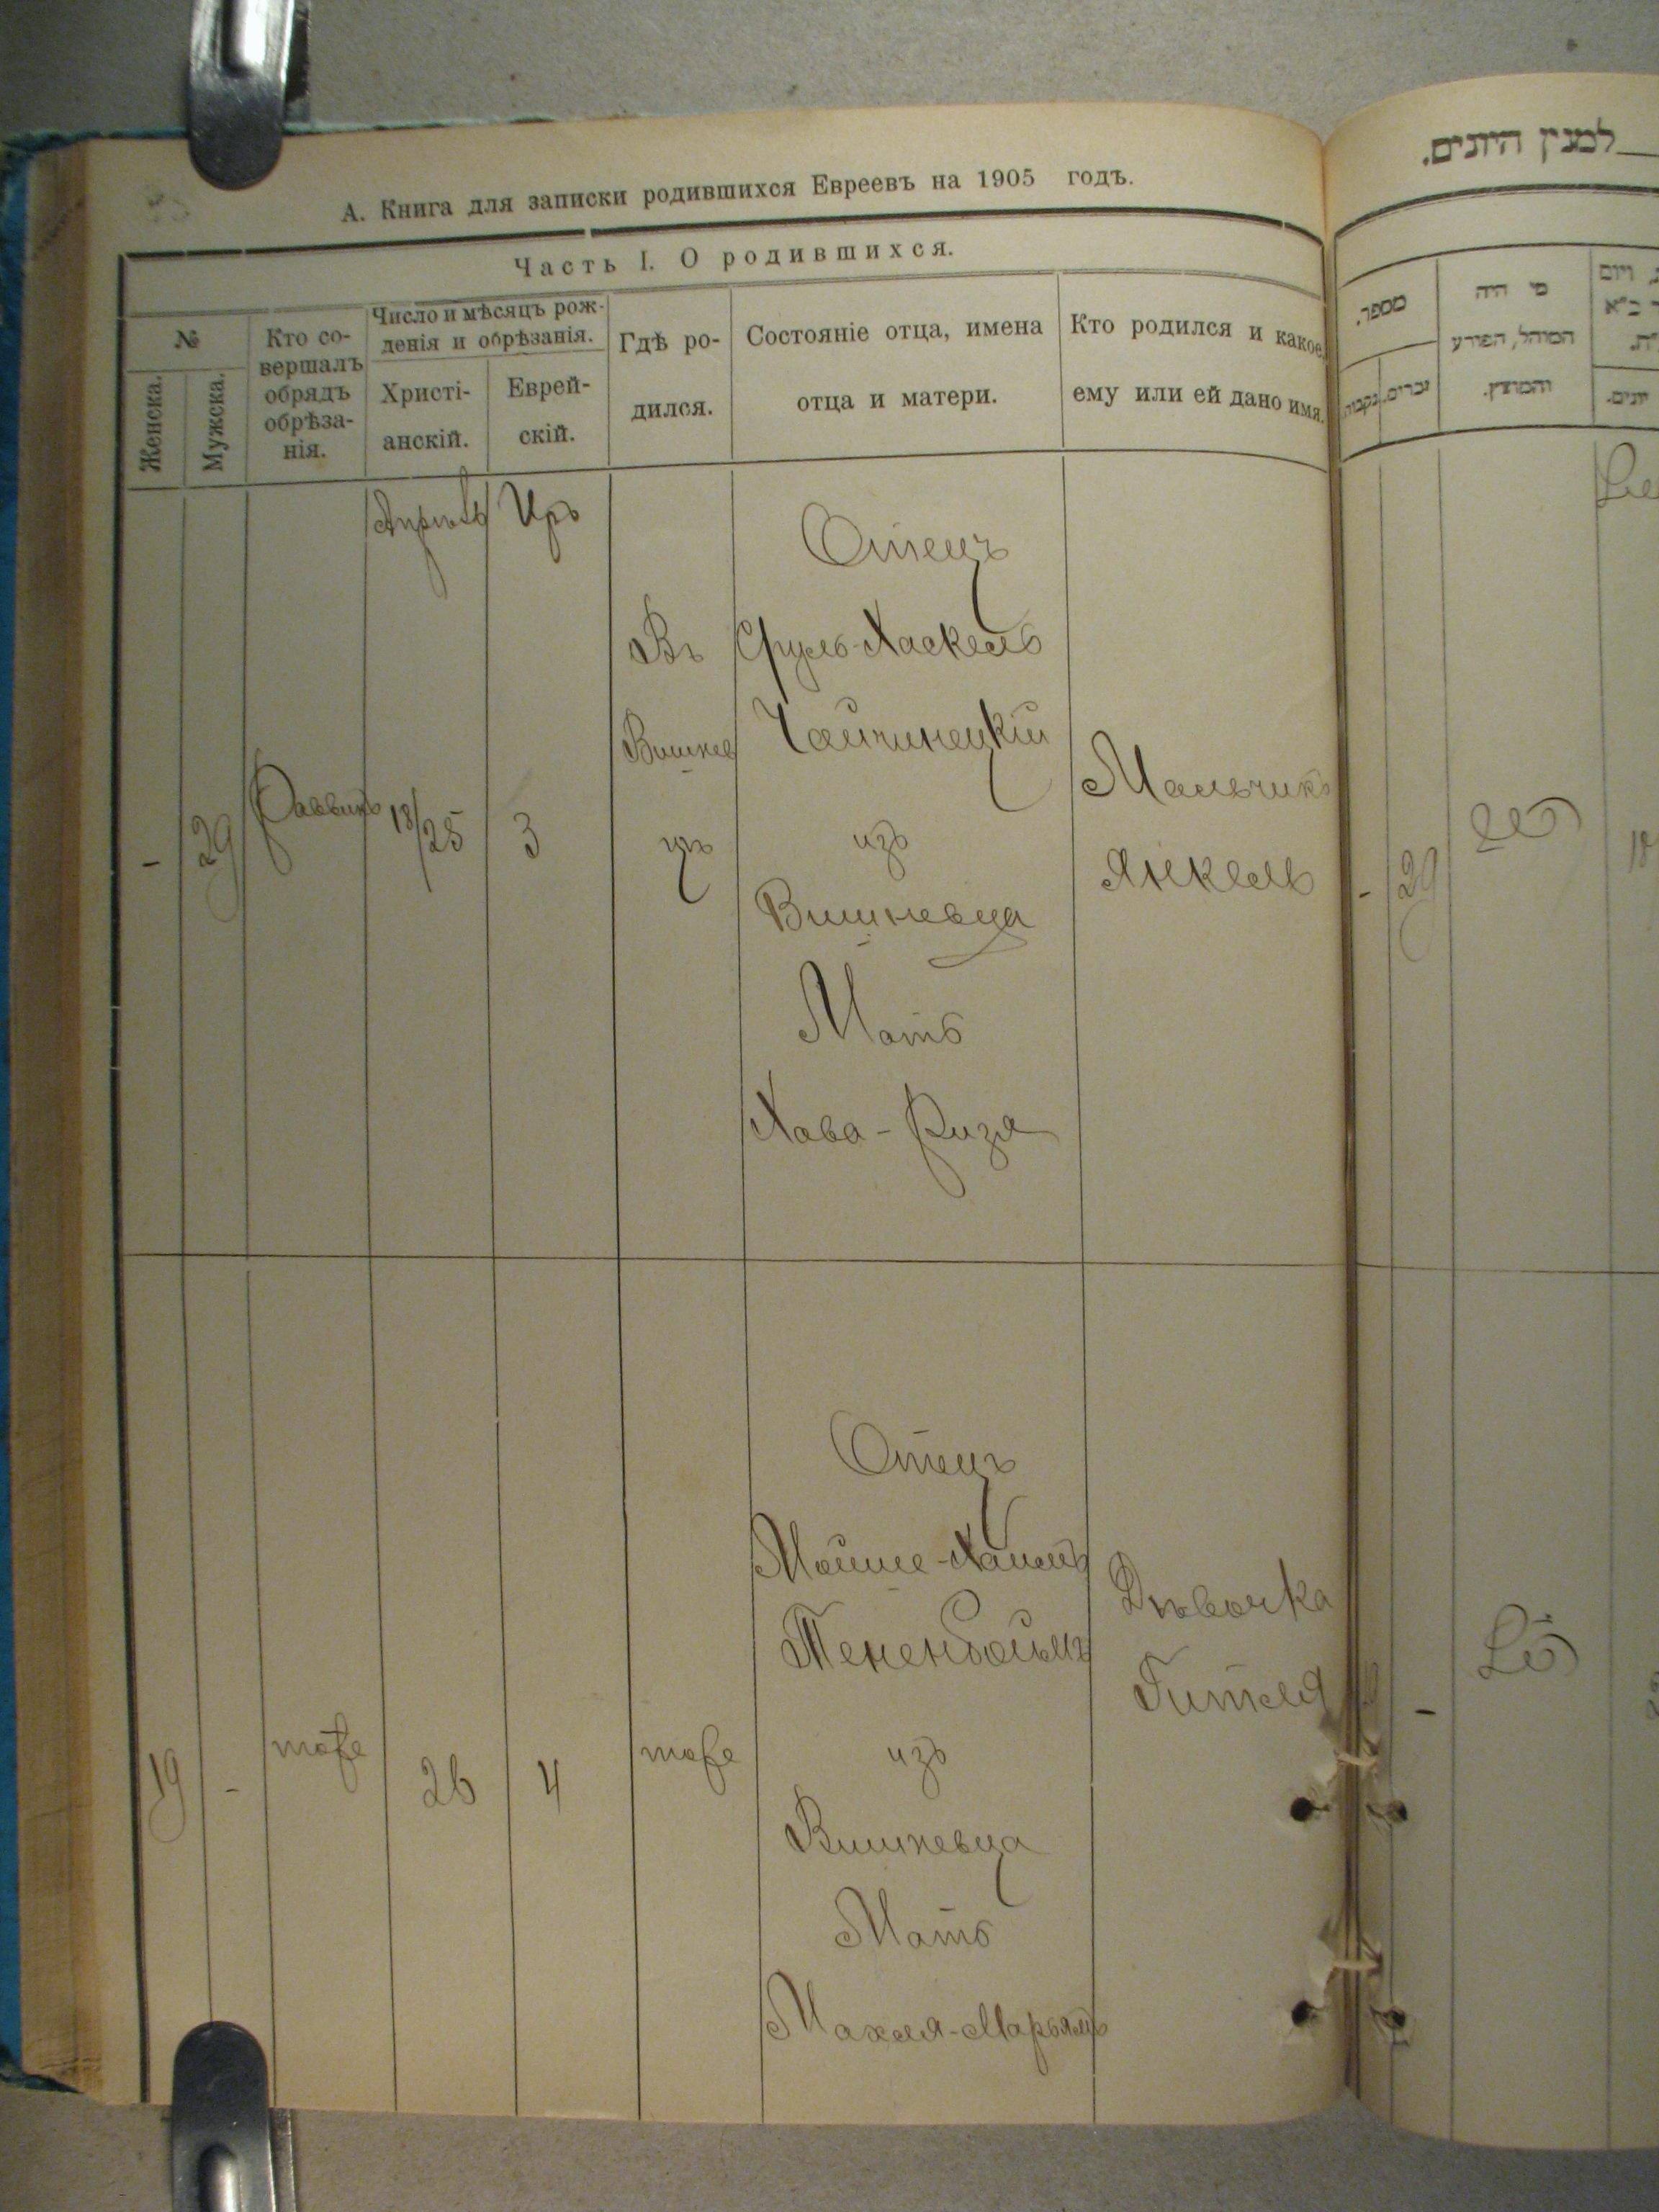 А. Книга для записки родившихся Евреевъ на 1905 годъ.
Часть I. О родившихся.
№
Женска.
Мужска.
Кто со-
вершалъ
обрядъ
обрѣза-
нія.
Число и мѣсяцъ рож-
денія и обрѣзанія.
Христі-
анскій.
Еврей-
скій.
Гдѣ ро-
дился.
Состояніе отца, имена
отца и матери.
Кто родился и какое
ему или ей дано имя.
Апрѣль
Иръ
-
29
Раввинъ
18/25
3
Въ
Вишнев
цѣ
Отецъ
Сруль-Хаскель
Чайчинецкій
изъ
Вишневца
Мать
Хава-Рузя
Мальчикъ
Янкель
19
-
тоже
26
4
тоже
Отецъ
Мойше-Хаимъ
Тененбоймъ
изъ
Вишневца
Мать
Махля-Марьямъ
Дѣвочка
Гитля
למנין היונים.
מספר.
נקבות.
זכרים.
מי היה
המוהל, הפורע
והמוצץ.
ויום
יונים.
-
29
18
-